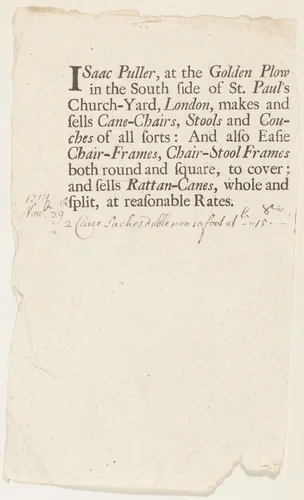 ISaac Puller, at the Golden Plow
in the South side of St. Paul's
Church-Yard, London, makes and
sells Cane-Chairs, Stools and Cou-
ches of all sorts: And also Easie
Chair-Frames, Chair-Stool Frames
both round and square, to cover:
and sells Rattan-Canes, whole and
split, at reasonable Rates.
29
2 Cane
15